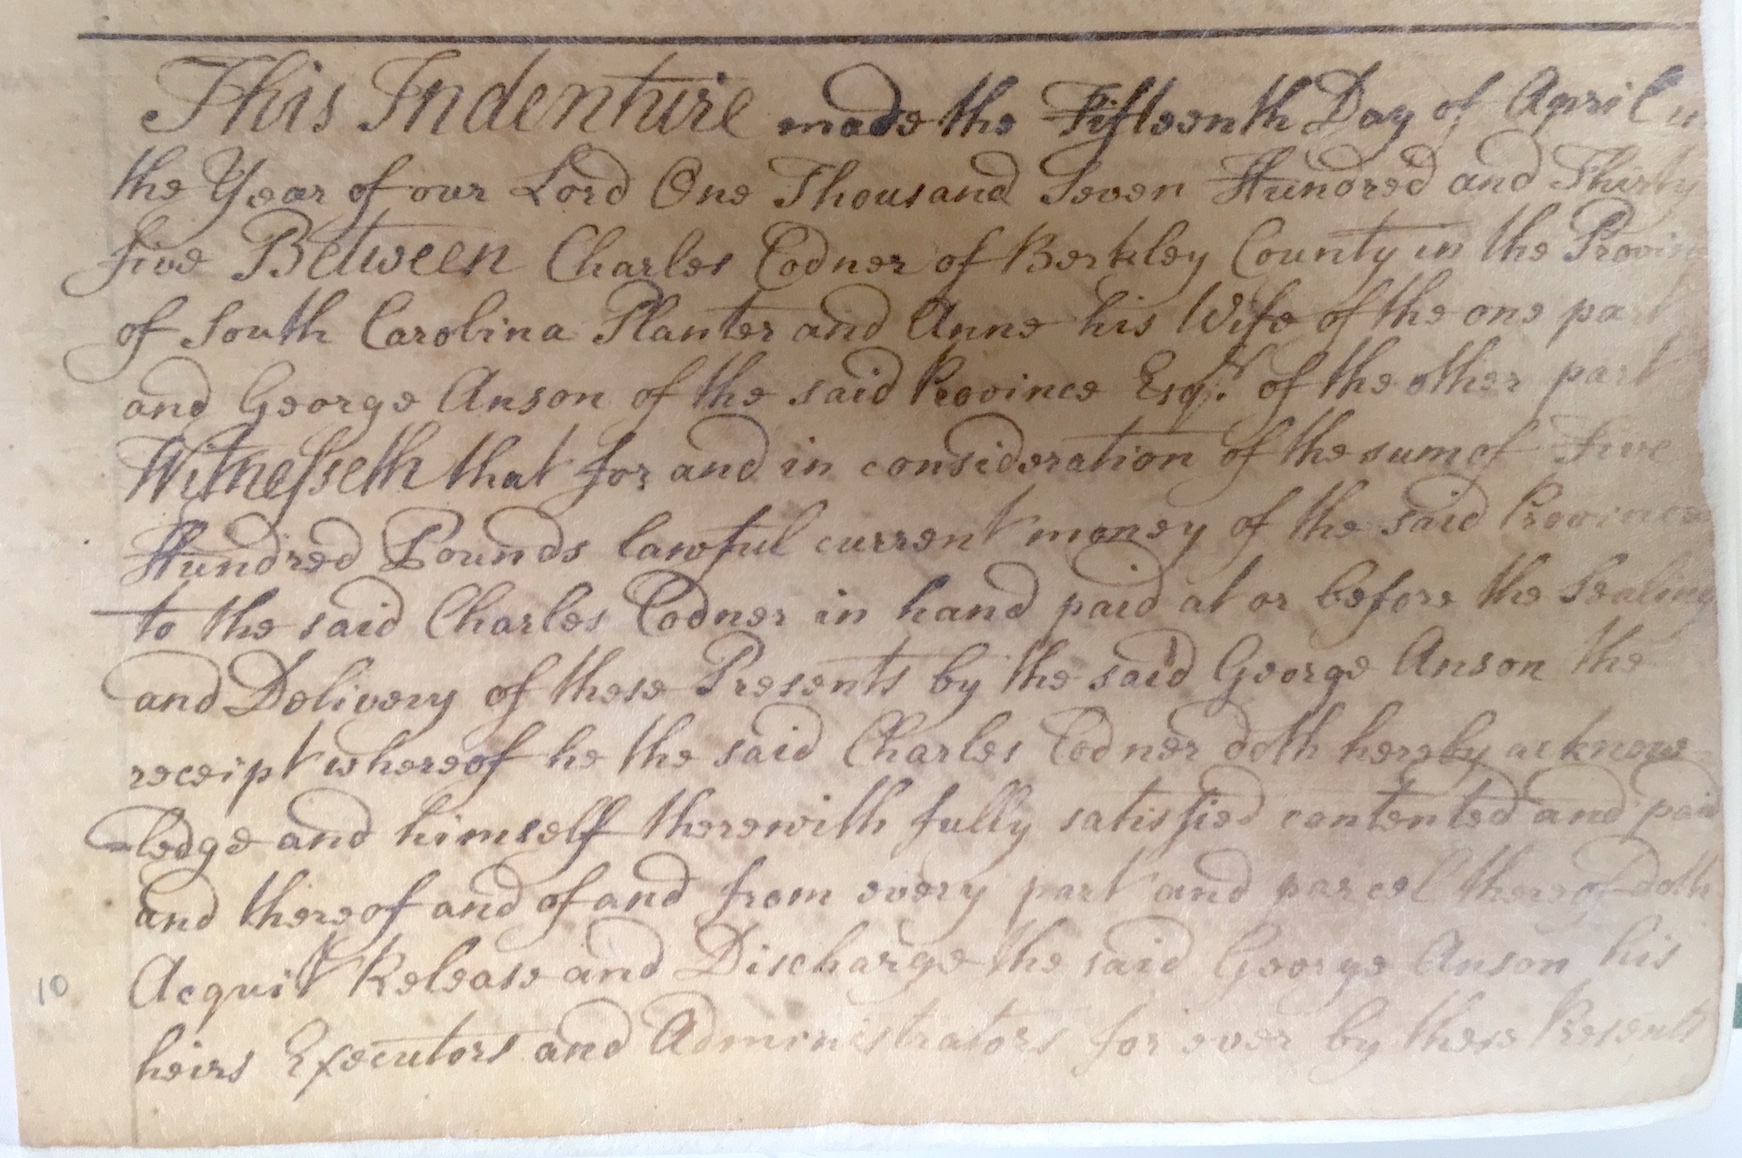 This Indenture made the Fifteenth Day of April
the Year of our Lord One Thousand Seven Hundred and Thirty
five Between Charles Codner of Berkley County in the Provin
of South Carolina Planter and Anne his Wife of the one part
and George Anson of the said Province Esqr. of the other part
Witnesseth that for and in consideration of the sum of Five
Hundred Pounds lawful current money of the said Province
to the said Charles Codner in hand paid at or before the Sealing
and Delivery of these Presents by the said George Anson the
receipt whereof he the said Charles Codner doth hereby acknow-
-ledge and himself therewith fully satisfied contented and paid
and thereof and of and from every part and parcel thereof doth
10 Acquit Release and Discharge the said George Anson his
heirs Executors and Administrators for ever by these Presents